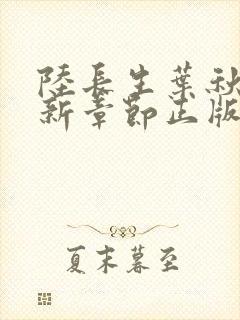 陸長生葉秋
新章節正版
夏末暮至